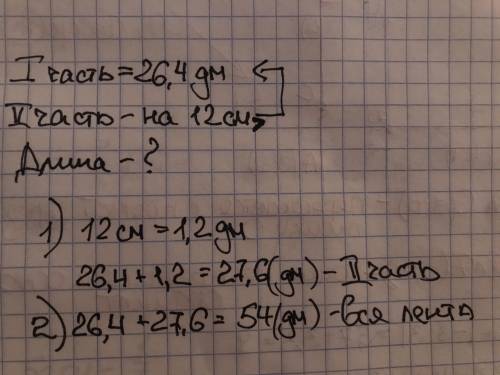 I часть = 26,4 дм
II часть - на 12 см >
Длина - ?
1) 12 см = 1,2 дм
26,4 + 1,2 = 27,6 (дм) - II часть
2) 26,4 + 27,6 = 54 (дм) - вся лента